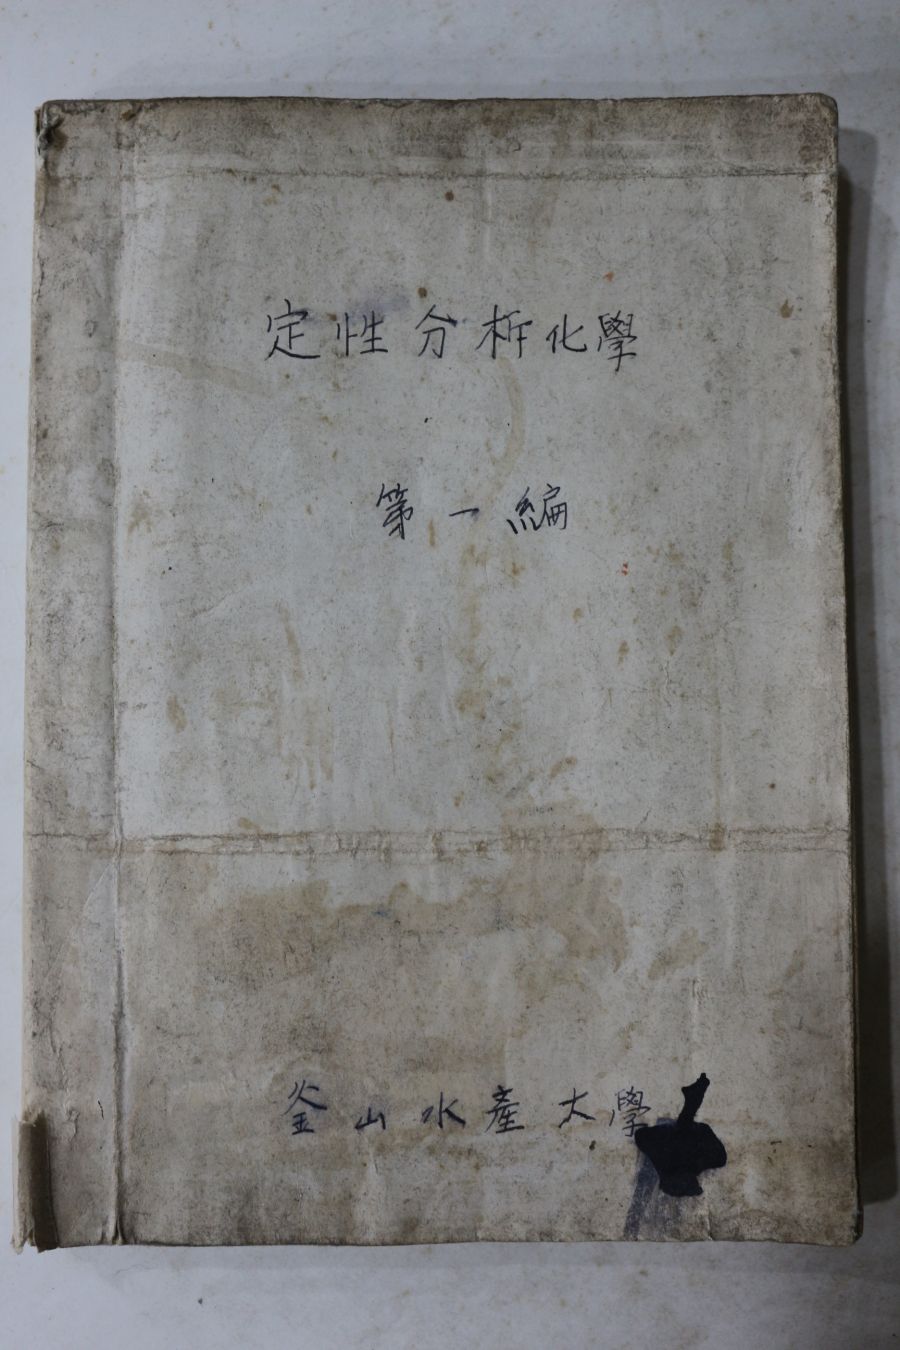 定性分析化學
第一編
釜山水產大學